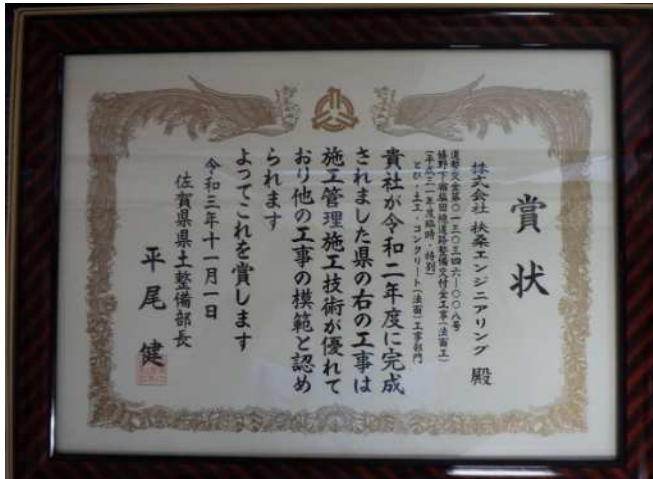 賞状
株式会社 扶桑エンジニアリング 殿
道整交金第〇一三〇三四六ー〇〇八号
嬉野下宿塩田線道路整備交付金工事(法面工)
(平成三一年度臨時・特別)
とび・土工・コンクリート(法面)工事部門
貴社が令和二年度に完成
されました県の右の工事は
施工管理施工技術が優れて
おり他の工事の模範と認め
られます
よってこれを賞します
令和三年十一月一日
佐賀県県土整備部長
平尾健